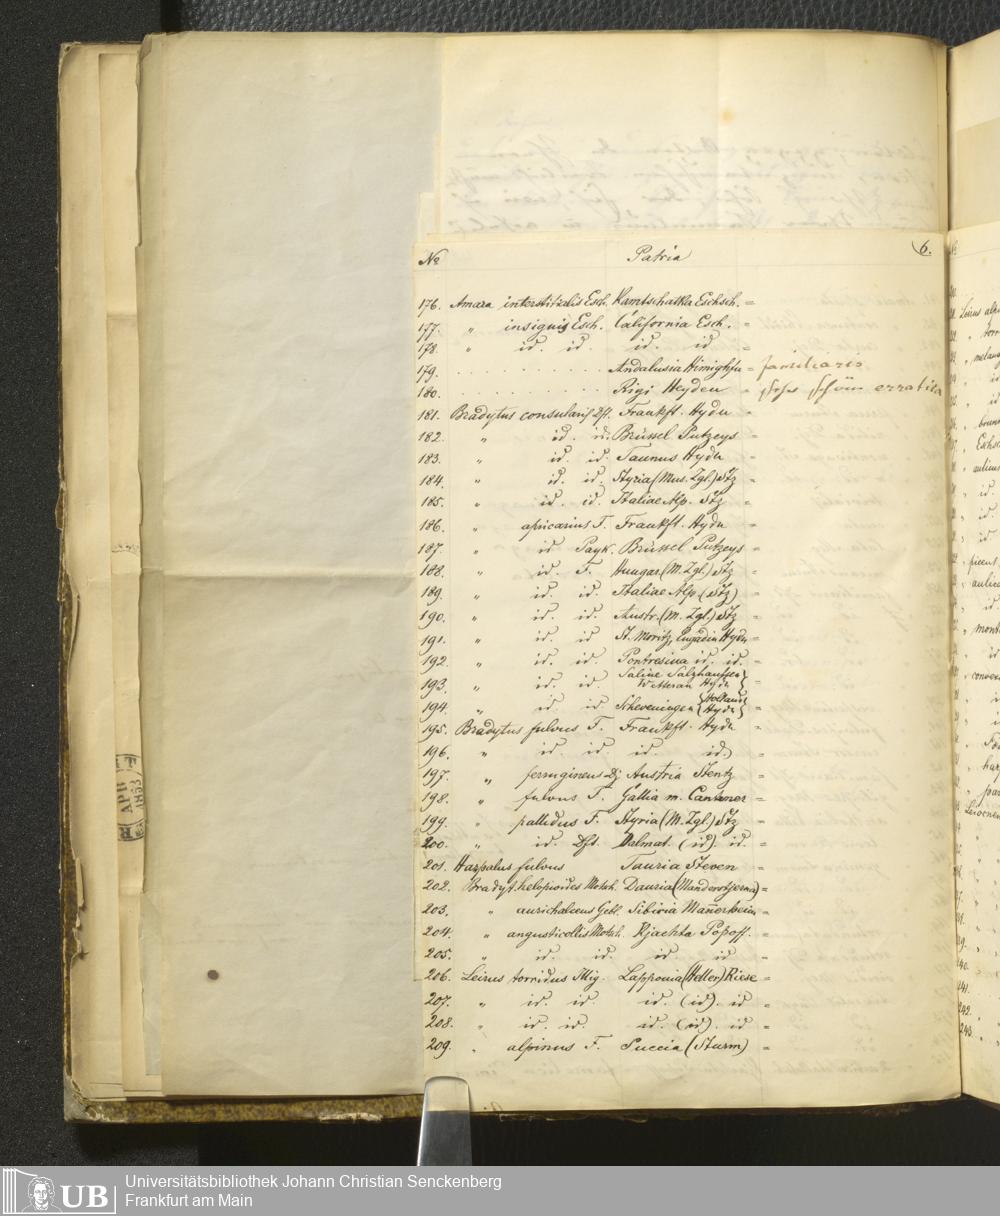 6.
No Patria
176. Amara interstitialis Esch. Kamtschatka Eschsch. =
177. " insignis Esch. California Esch. =
178. " id. id. id. id =
179. . . . . . . . . . Andalusia = familiaris
180. . . . . . . . . . Rigi Heyden = schön erratica
181. Bradytus consularis Dft. Frankft. Hydn =
182. " id. id. Brüssel Putzeys =
183. " id. id. Taunus Hydn =
184. " id. id. Styria (Mus. Zgl.) Stz =
185. " id. id. Italiae Alp. Stz =
186. " apricarius F. Frankft. Hydn =
187. " id Payk. Brüssel Putzeys =
188. " id. F. Hungar (M. Zgl.) Stz =
189. " id. id. Italiae Alp (Stz) =
190. " id. id. Austr. (M. Zgl.) Stz =
191. " id. id St. Moritz, Engadin Hydn =
192. " id. id. Pontresina id. id. =
193. " id. id. Saline Salzhausen Wetterau Hydn } =
194. " id id Scheveningen { Holland Hydn } =
195. Bradytus fulvus F. Frankft. Hydn =
196. " id. id. id. id.) =
197. " ferrugineus Dj Austria Stentz =
198. " fulvus F. Gallia m. Cantener =
199. " pallidus F. Styria (M. Zgl.) Stz =
200. " id. Dft. Dalmat. (id). id. =
201. Harpalus fulvus Tauria Steven =
202. Bradyt. helopioides Motsch. Dauria =
203. " aurichalceus Gebl. Sibiria Mannerheim =
204. " angusticollis Motsch. Kjachta Popoff. =
205. " id. id. id. id =
206. Leirus torridus Illig. Lapponia (Heller) Riese =
207. " id. id. id. (id). id =
208. " id. id. id. (id). id =
209. " alpinus F. Suecia (Sturm) =
APR
1853
UB
Universitätsbibliothek Johann Christian Senckenberg
Frankfurt am Main